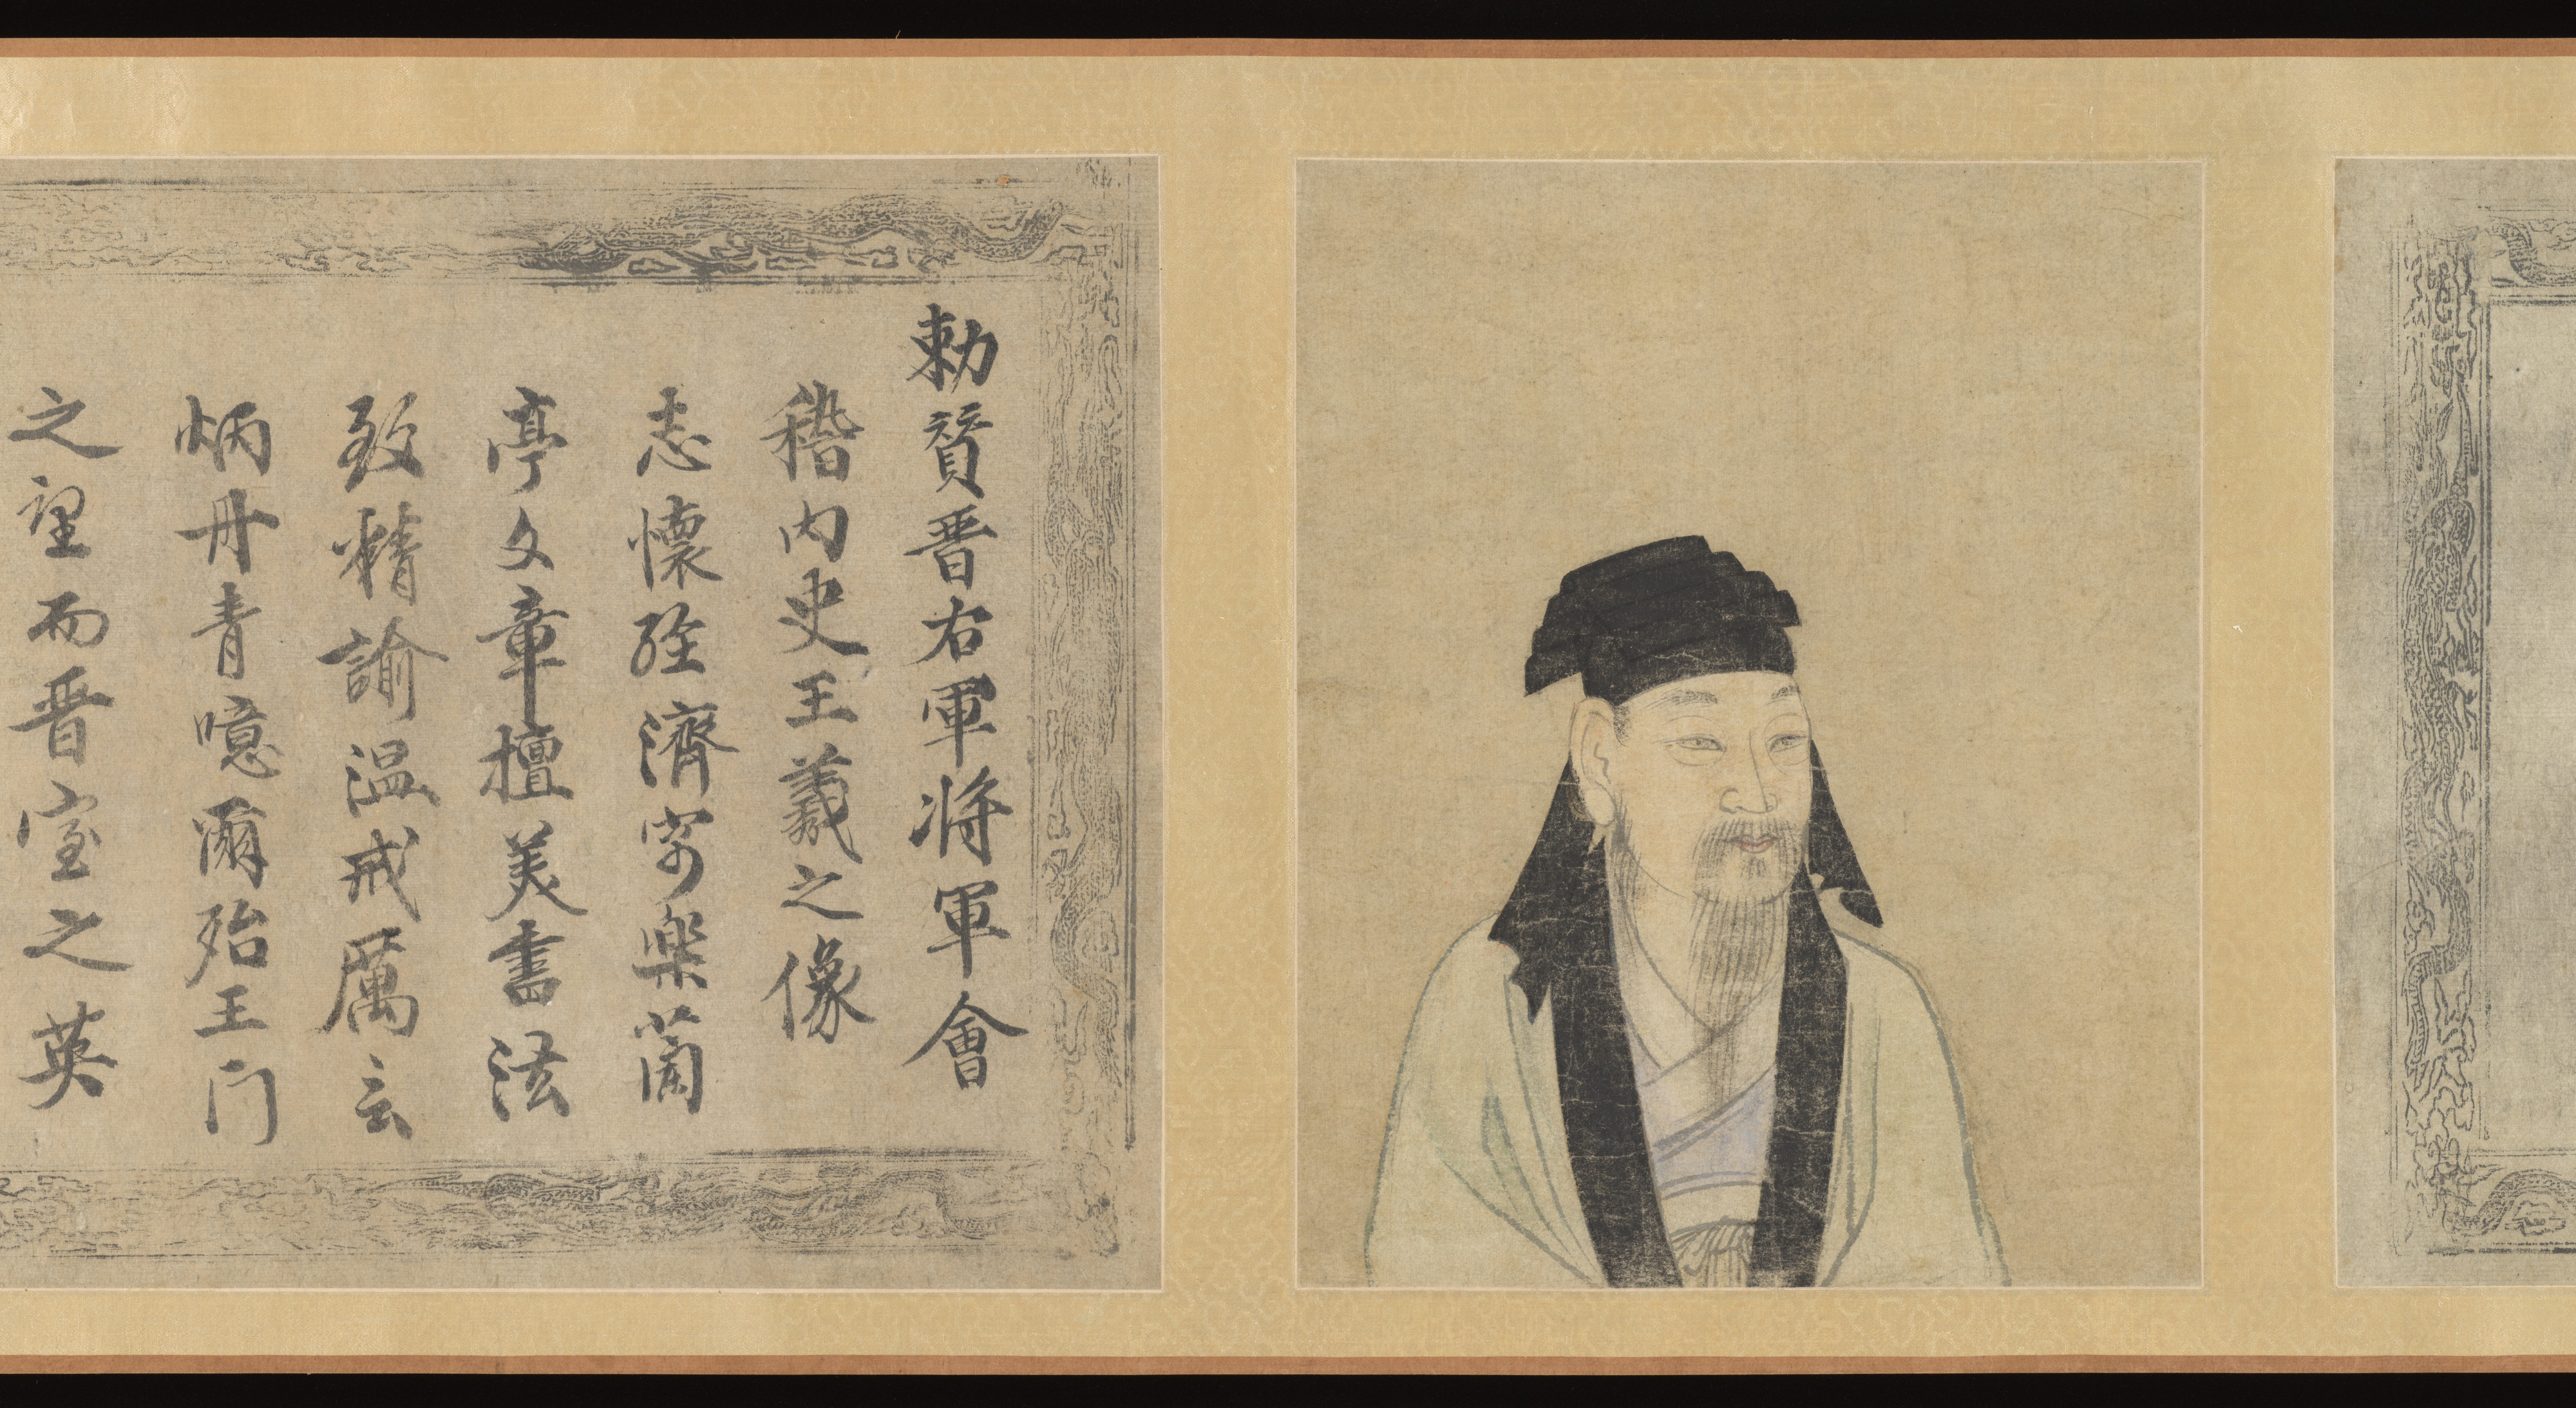 勅賛晋右軍将軍會
稽内史王羲之像
志懷經濟寄樂蘭
亭文章擅美書法
致精諭温戒厲言
炳丹青噫爾殆王门
之望而晋室之英